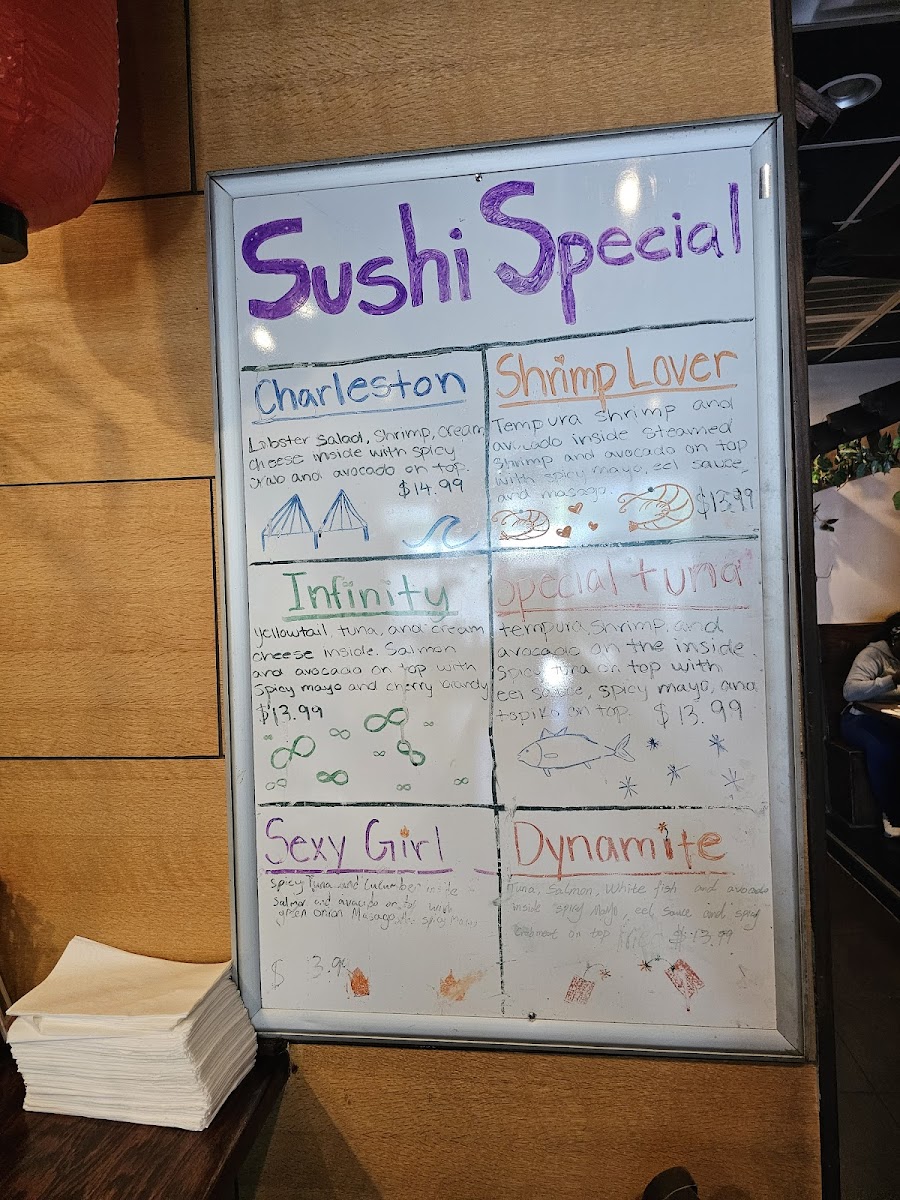 Sushi Special
Charleston
Lobster Salad, Shrimp, cream
cheese inside with spicy
crab and avocado on top.
$14.99
Shrimp Lover
Tempura shrimp and
avocado inside steamed
shrimp and avocado on top
with spicy mayo, eel sauce,
and masago.
$13.99
Infinity
yellowtail, tuna, and cream
cheese inside. Salmon
and avocado on top with
Spicy mayo and cherry brandy
$13.99
Special tuna
tempura, Shrimp, and
avocado on the inside.
Spicy tuna on top with
eel sauce, spicy mayo, and
on top. $13.99
Sexy Girl
Spicy Tuna and Cucumber
Salmon and avocado on top with
green onion Masago, Spicy
$ 3.9
Dynamite
Tuna, Salmon, White fish and avocado
inside spicy Mayo, eel sauce and spicy
on top $13.99